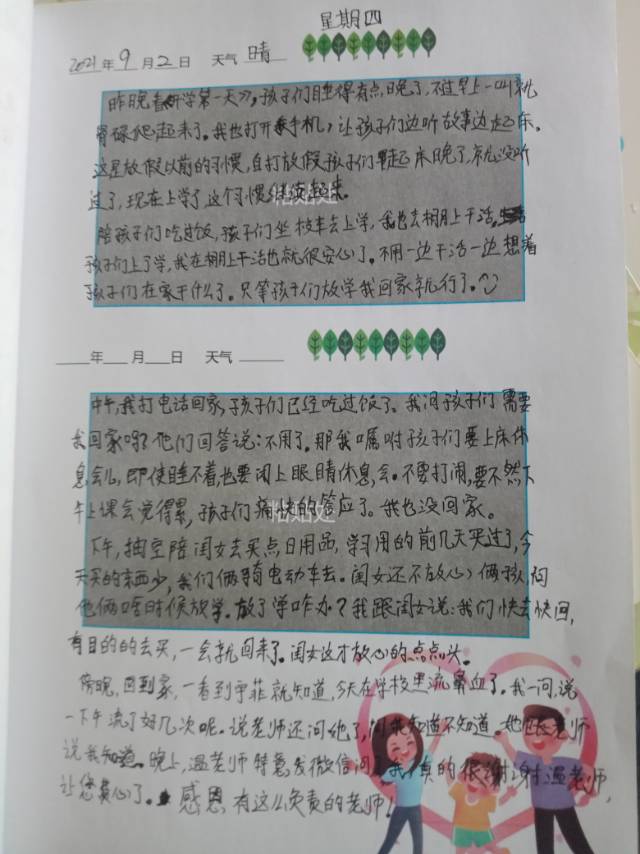 星期四
2021年9月2日 天气 晴
昨晚看《开学第一天》,孩子们睡得有点晚了,不过早上一叫就
骨碌爬起来了。我也打开手机,让孩子们边听故事边起床。
这是放假以前的习惯,自打放假孩子们起床晚了,就没听
过了,现在上学了这个习惯继续起来。
粘贴处
陪孩子们吃过饭,孩子们坐校车去上学,我也去棚上干活。
孩子们上了学,我在棚上干活也就很安心了。不用一边干活一边想着
孩子们在家干什么了。只等孩子们放学我回家就行了。
年 月 日 天气
中午,我打电话回家,孩子们已经吃过饭了。我问孩子们需要
我回家吗?他们回答说:不用了。那我嘱咐孩子们要上床休
息会儿,即使睡不着也要闭上眼睛休息会。不要打闹,要不然下
午上课会觉得累,孩子们痛快的答应了。我也没回家。
粘贴处
下午,抽空陪闺女去买点日用品,学习用的前几天买过了,今
天买的东西少,我们俩骑电动车去。闺女还不放心俩孩,问
他俩啥时候放学。放了学咋办?我跟闺女说:我们快去快回,
有目的的去买,一会就回来了。闺女这才放心的点点头。
傍晚,回到家,一看到宇菲就知道,今天在学校里流鼻血了。我一问,说
一下午流了好几次呢。说老师还问他了,问我知道不知道。她跟老师
说我知道。晚上,温老师特意发微信问了我,真的很谢谢温老师,
让您费心了。感恩有这么负责的老师!